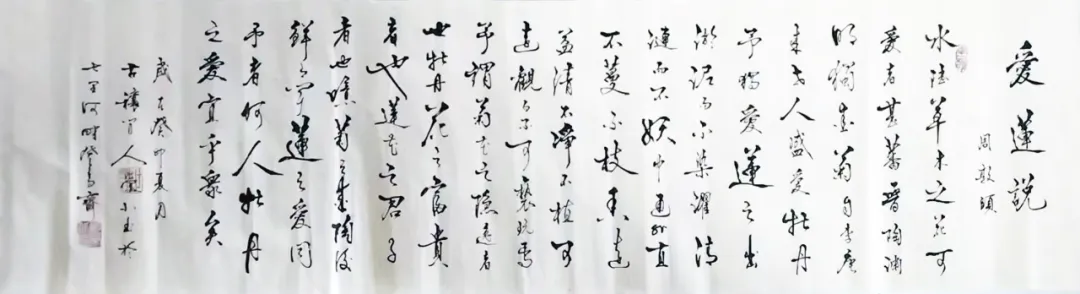 愛蓮説
周敦頤
水陸草木之花可
愛者甚蕃晋陶淵
明獨愛菊自李唐
来世人盛愛牡丹
予獨愛蓮之出
淤泥而不染濯清
漣而不妖中通外直
不蔓不枝香遠
益清不淨不植可
遠觀而不可褻玩焉
予謂菊花之隱逸者
也牡丹花之富貴
者也蓮花之君子
者也噫菊之愛陶後
鮮蓮之愛同
予者何人牡丹
之愛宜乎衆矣
歲在癸卯夏月
古人劉小玉於
七里河畔